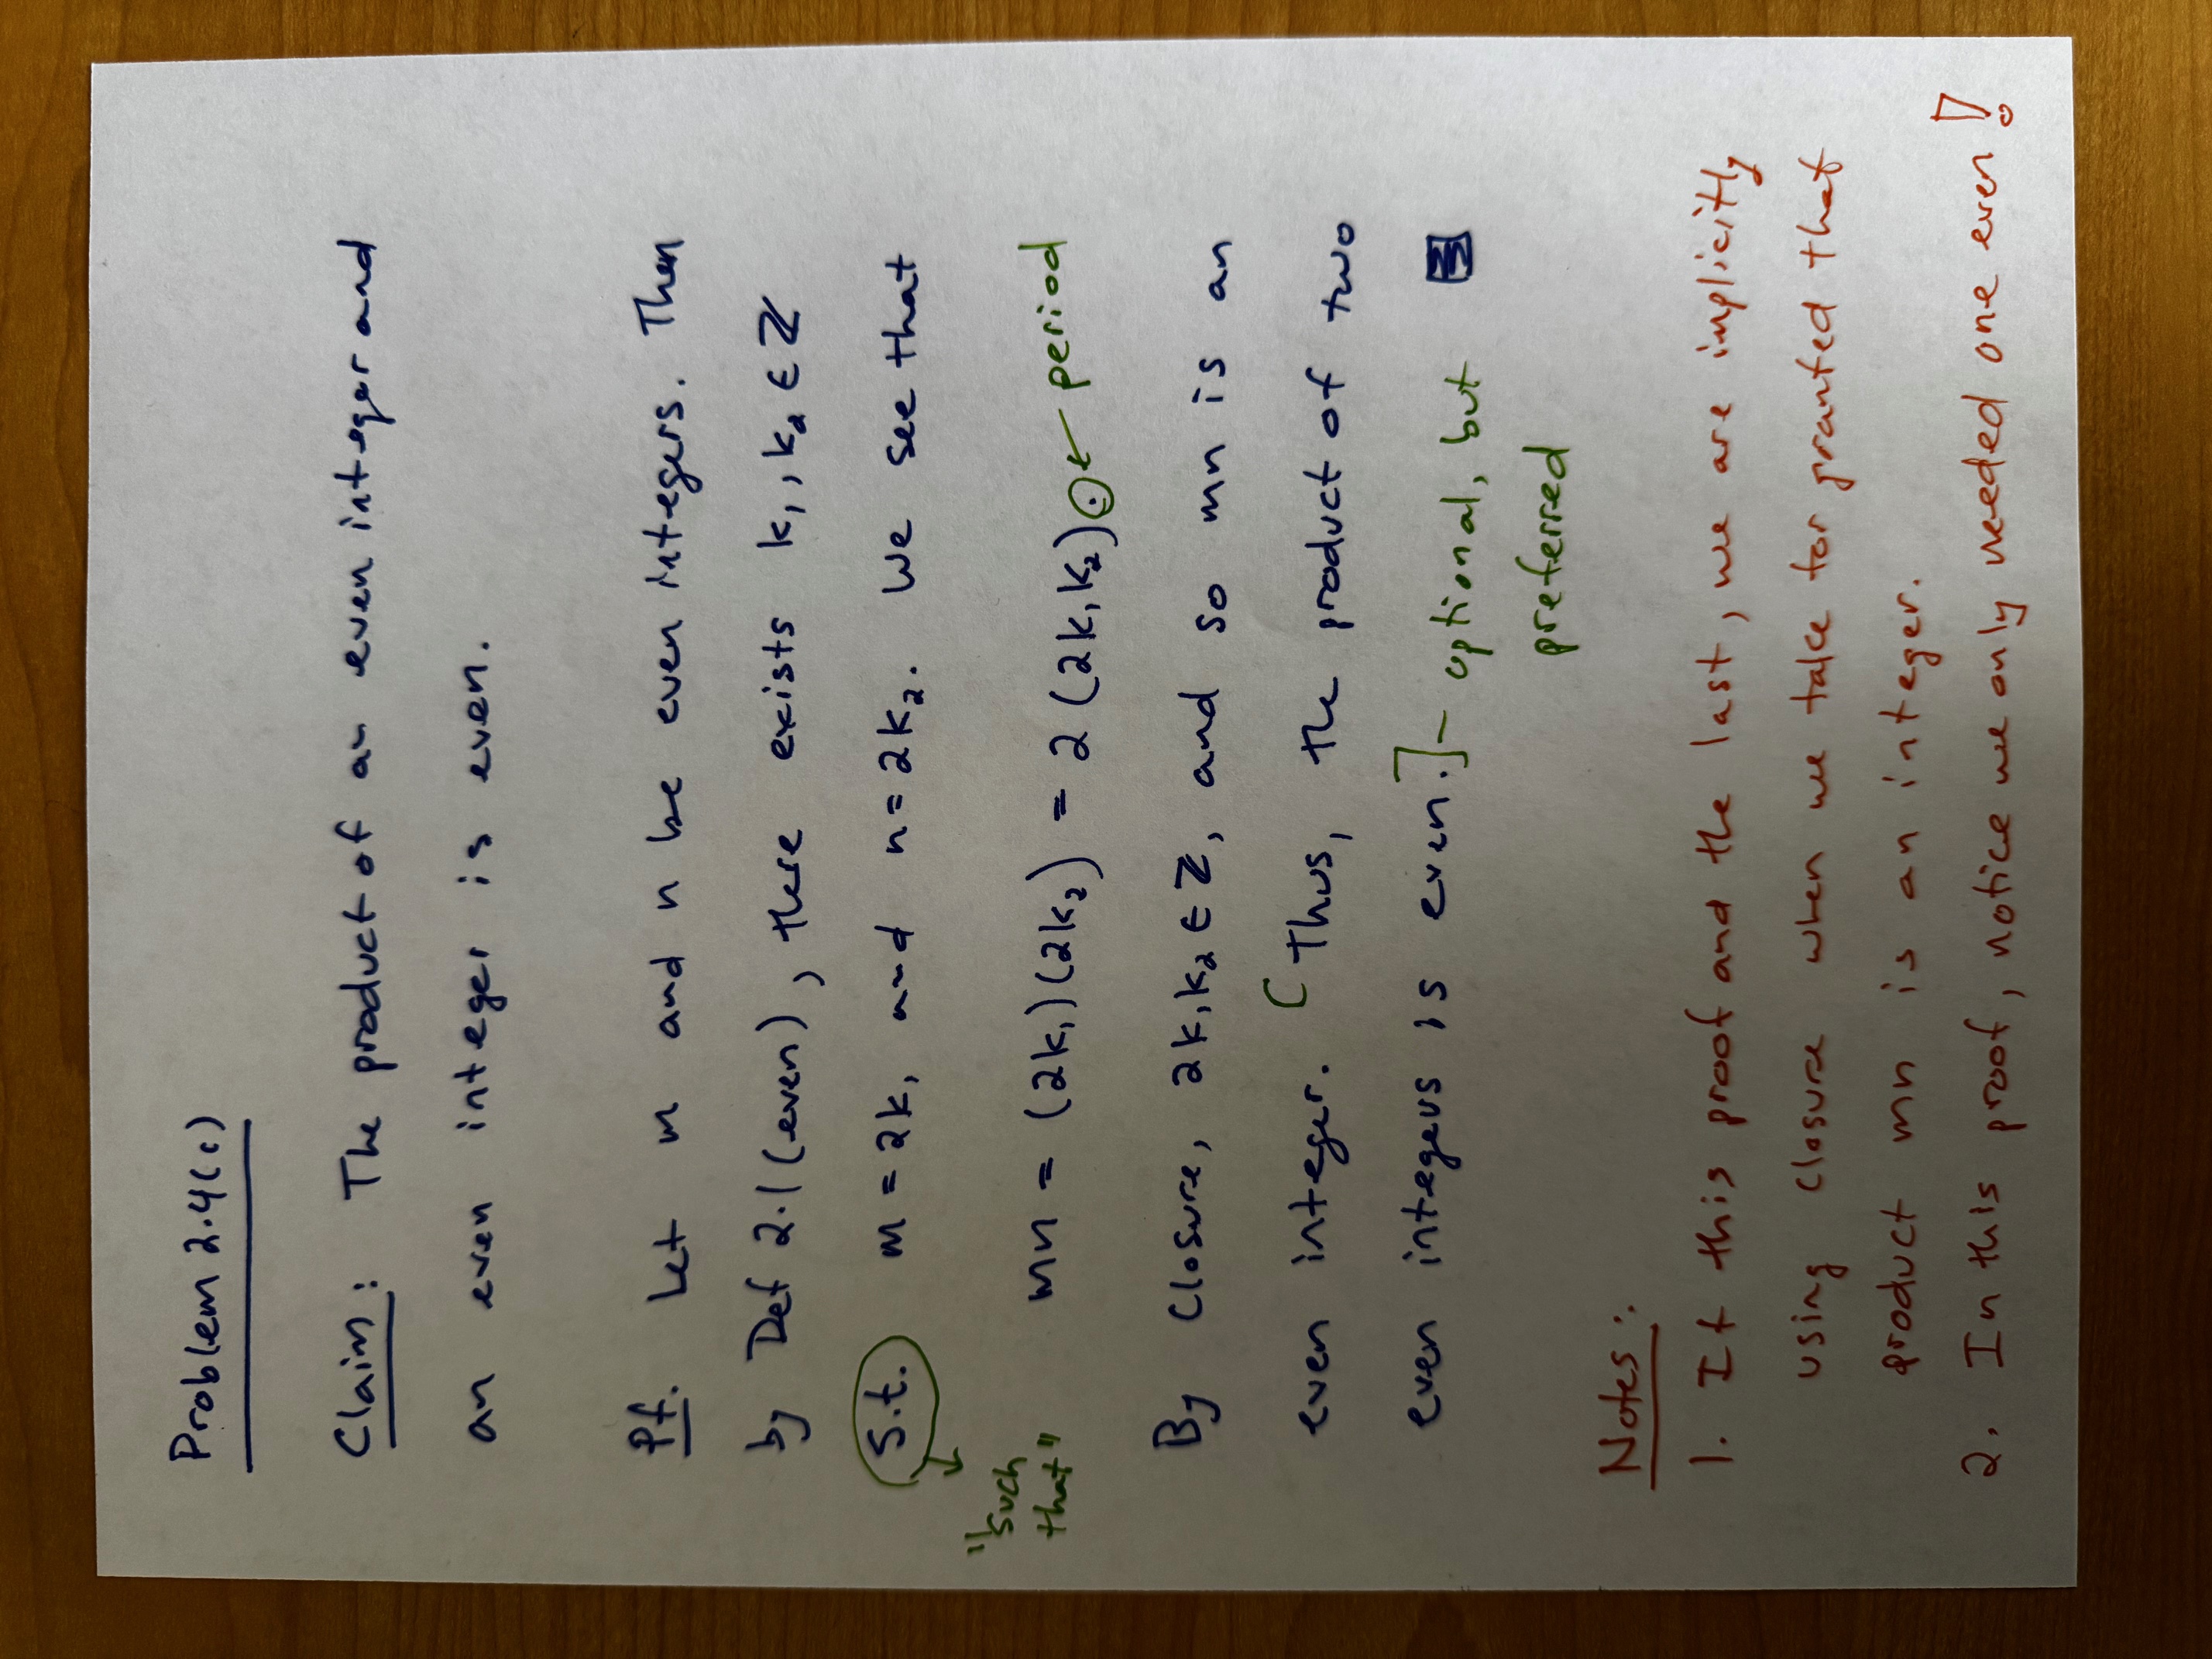 Problem 2.4(c)
Claim: The product of an even integer and
an even integer is even.
Pf. Let m and n be even integers. Then
by Def 2.1 (even), there exists k₁, k₂ ∈ ℤ
s.t. m = 2k₁ and n = 2k₂. We see that
"such
that"
mn = (2k₁)(2k₂) = 2(2k₁k₂). ← period
By closure, 2k₁k₂ ∈ ℤ, and so mn is an
even integer. [Thus, the product of two
even integers is even.] optional, but
preferred
Notes:
1. If this proof and the last, we are implicitly
using closure when we take for granted that
product mn is an integer.
2. In this proof, notice we only needed one even!